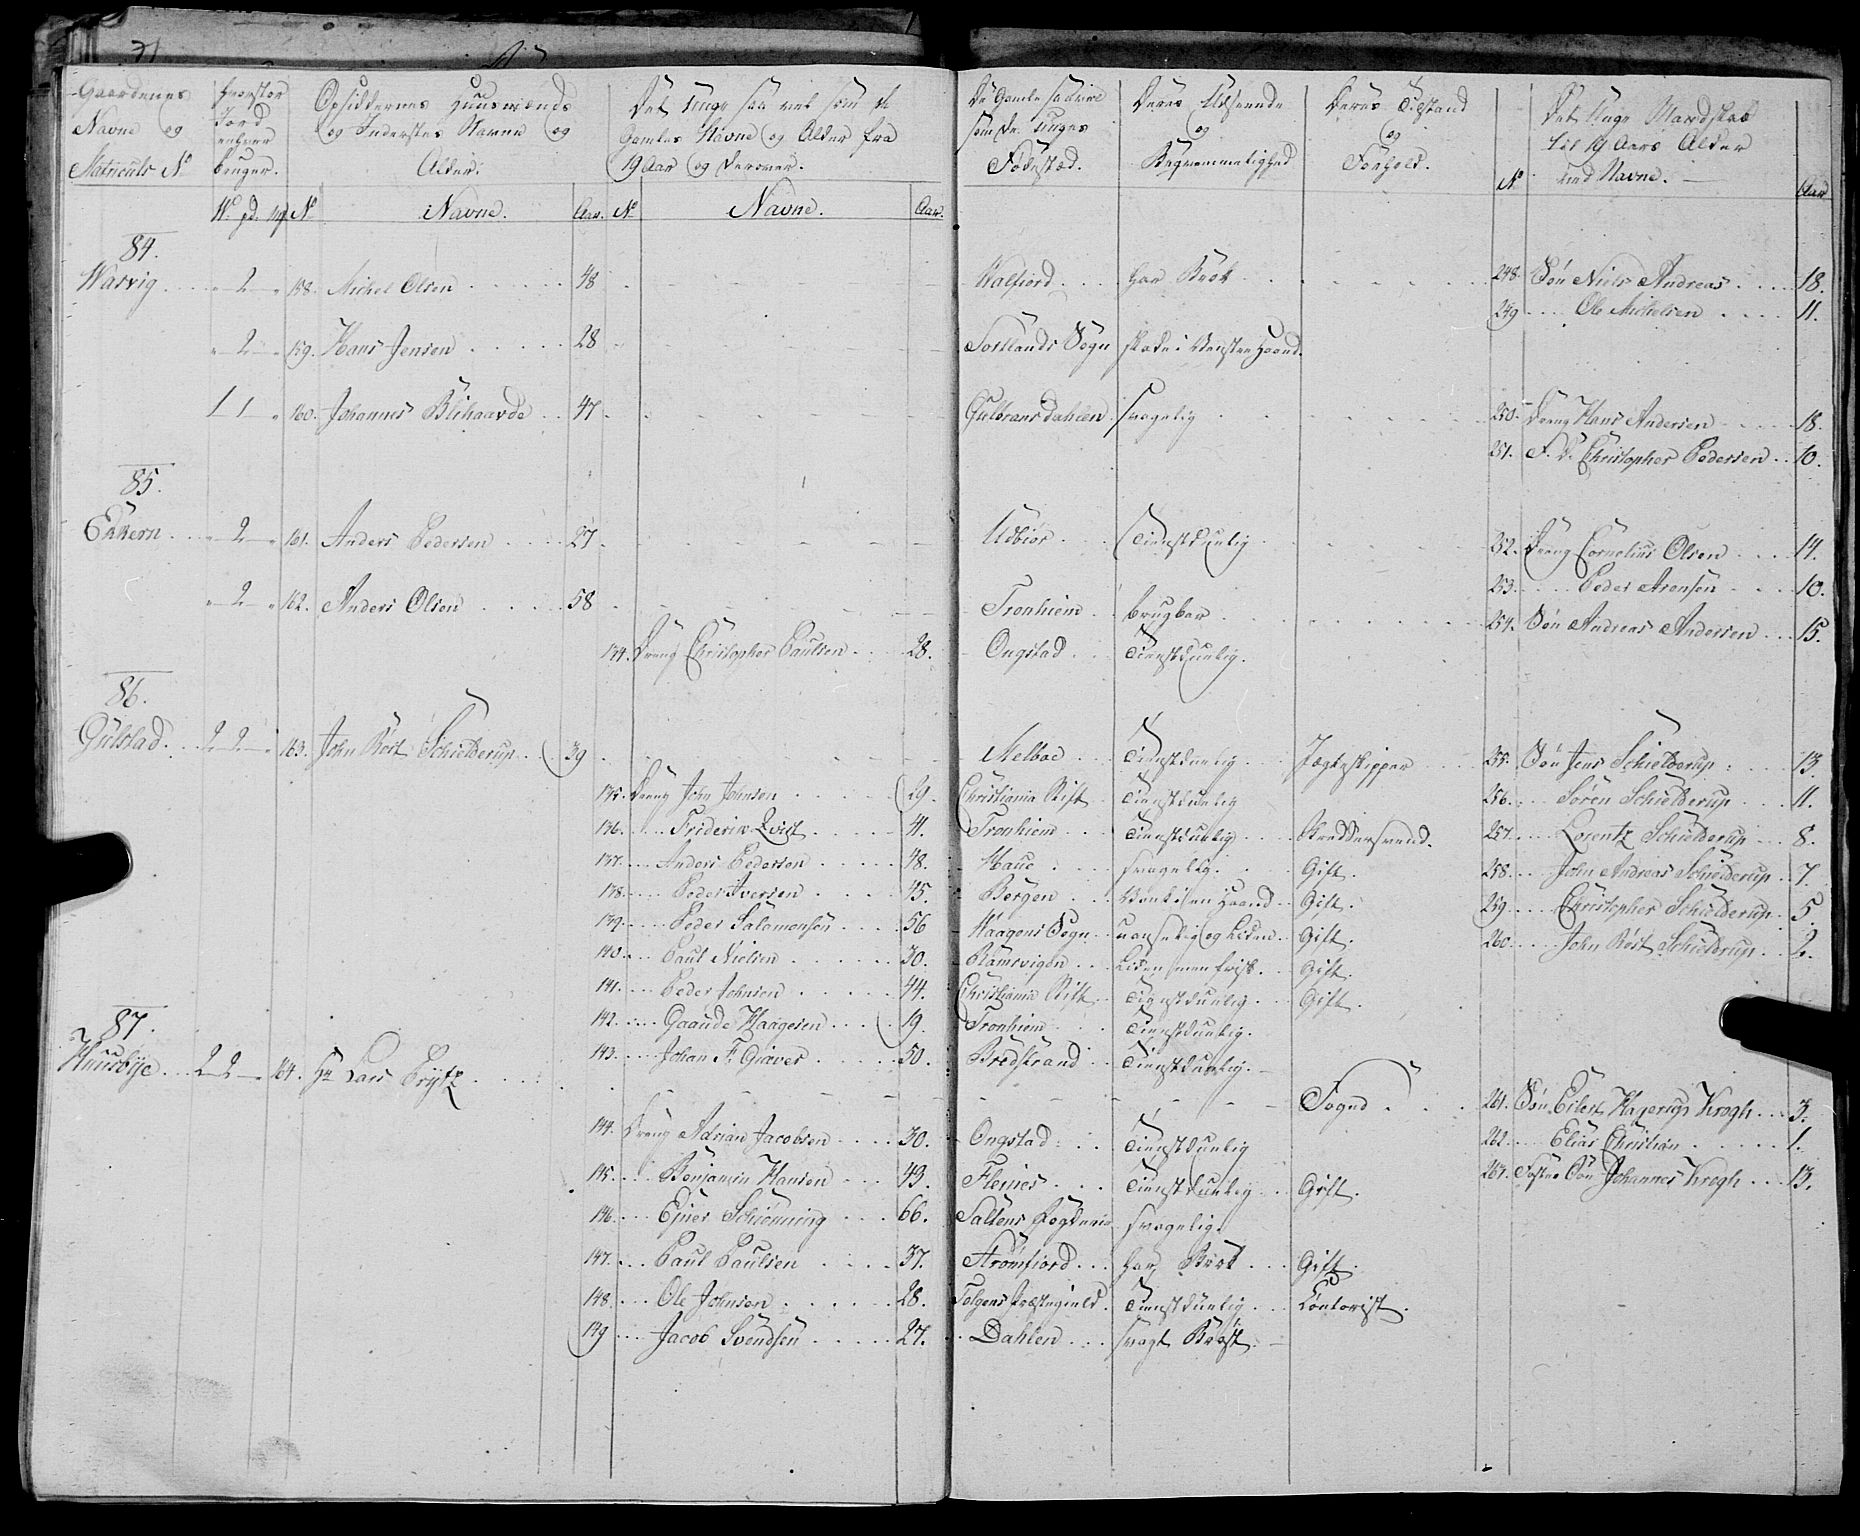 Gaardenes Navne og Matriculs No
Hvorstor Jord enhver bruger.
Opsiddernes Huusmænds og Indersters Navne og Alder.
Det Unge saa vel som de Gamles Navne og Alder fra 19 Aar og derover.
De Gamle saavel som de Unges Fødestæd.
Deres Udseende og Beqvemmelighed
Deres Tilstand og Forhold.
Det Unge Mandskab til 19 Aars Alder med Navne.
W. pd. mk. No Navne. Aar. No Navne. Aar. No Aar
84.
Warvig 2 158. Michel Olsen 48 Kalfiord har Brok 248. Søn Niels Andreas 18.
249 Ole Michelsen 11.
2 159. Hans Jensen 28 Sortlands Sogn skade i Venstre Haand.
1 1 160. Johannes Blikaavde 47 Gulbransdahlen svagelig 250. Dreng Hans Andersen 18.
251. F. S. Christopher Pedersen 10.
85.
Ekkern 2 161. Anders Pedersen 27 Udbiør Tienstdynlig 252. Dreng Cornelius Olsen 14.
253. Peder Arensen 10.
2 162. Anders Olsen 58 Tronhiem brugbar 254. Søn Andreas Andersen 15.
134. Dreng Christopher Paulsen 28. Ongstad Tienstdynlig.
86.
Gulstad 2 2 163. John Røst Schielderup 39 Melboe Tienstdynlig Jægteskipper 255. Søn Jens Schielderup 13.
135. Dreng John Johnsen 29. Christiania Stift Tienstdynlig 256. Søren Schielderup 11.
136. Friderik Qvist 41. Tronhiem Tienstdynlig Skreddersvend. 257. Lorentz Schielderup 8.
137. Anders Pedersen 48. svagelig. Gift. 258. John Andreas Schielderup 7.
138. Peder Iversen 45. Bergen Haand Gift. 259. Christopher Schielderup 5
139. Peder Salomonsen 56 Haagens Sogn uanselig og Liden Gift. 260. John Røst Schieldrup 2.
140. Paul Nielsen 30. Ramsvigen Liden men frisk. Gift.
141. Peder Johnsen 44. Christiania Stift Tienstdynlig. Gift.
142. Gaaude Haagesen 19. Tronhiem Tienstdynlig.
143. Johan F. Giæver 50. Bredstrand Tienstdynlig.
87.
Huusbye 2 2 164. Hr Lars Crytz Sogne 261. Søn Eilert Hagerup Krogh 3.
144. Dreng Adrian Jacobsen 30. Ongstad Tienstdynlig 262. Elias Christian 1.
145. Benjamin Hansen 49. Fleines Tienstdynlig Gift. 263. Foster Søn Johannes Krogh 13.
146. Ejner Schiønning 66. Saltens Fogderie svagelig.
147. Paul Paulsen 37. Strømfiord har Brok Gift.
148. Ole Johnsen 28. Tolgens Præstegield. Tienstdynlig Contorist.
149 Jacob Svendsen 27. Dahlen svagt Brøst.